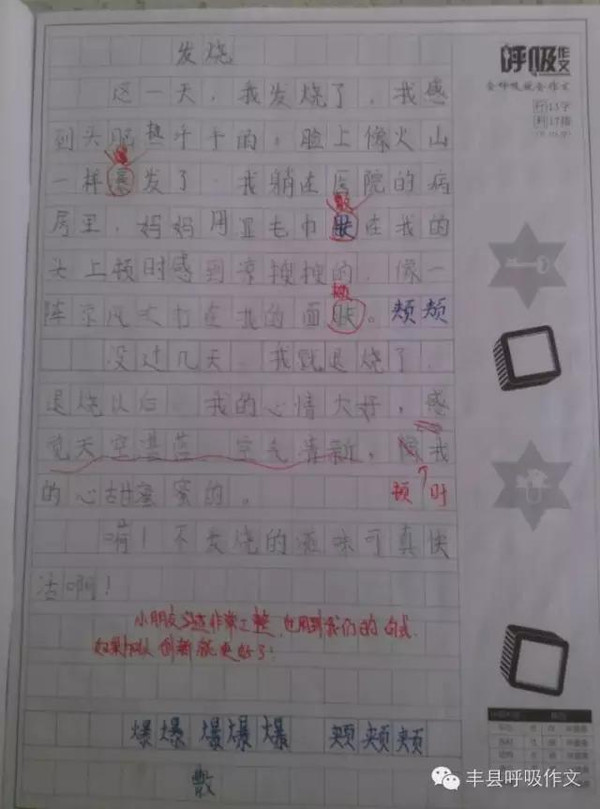 呼吸作文
发烧
这一天，我发烧了，我感
到头昏热乎乎的，脸上像火山
一样暴发了。我躺在医院的病
爆
房里，妈妈用湿毛巾敷在我的
敷
头上顿时感到凉搜搜的，像一
阵凉风吹在我的面颊。颊颊
颊
没过几天，我就退烧了，
退烧以后，我的心情大好，感
觉天空湛蓝、空气清新，我
的心甜蜜蜜的。
顿时
啊！不发烧的滋味可真快
活啊！
小朋友书写非常工整，也用到我们的句式，
如果加以创新就更好了！
爆爆爆爆爆 颊颊颊
敷
丰县呼吸作文